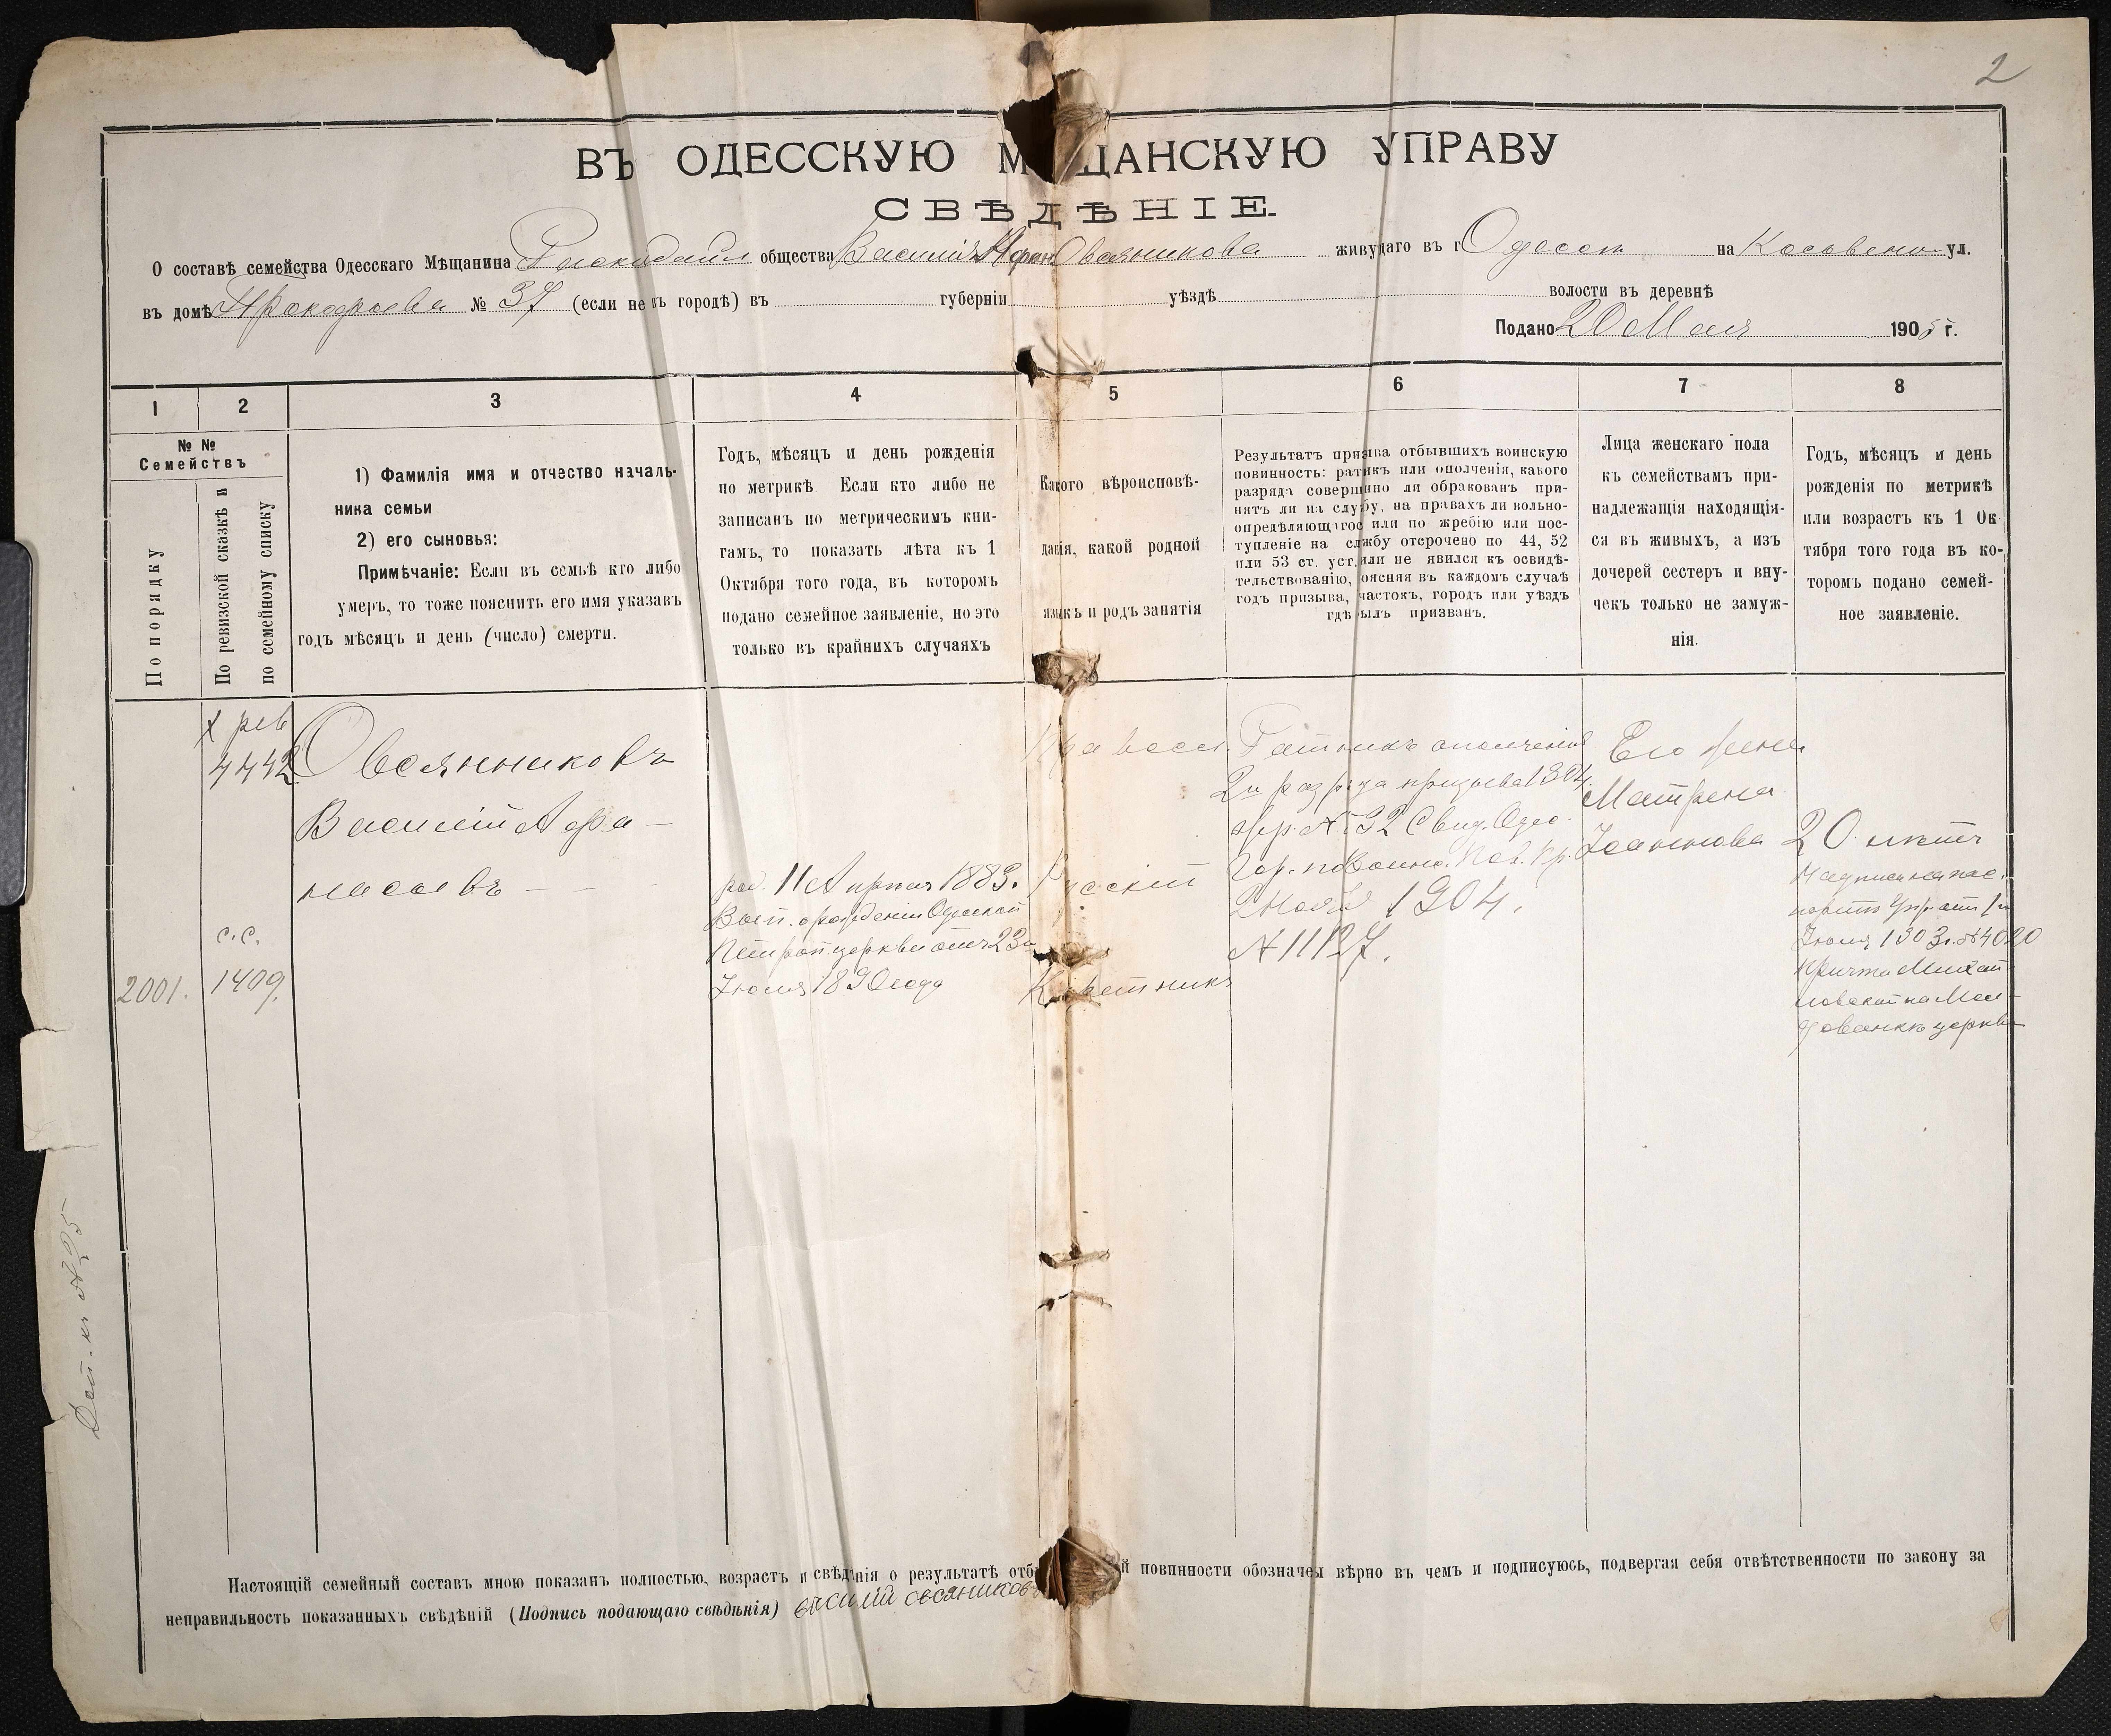 2
ВЪ ОДЕССКУЮ М ЩАНСКУЮ УПРАВУ
СВѢДѢНІЕ.
О составѣ семейства Одесскаго Мѣщанина общества Василія Афан Овсянникова живущаго въ г Одессѣ на Косвенн ул.
въ домѣ Прокофьева № 37 (если не въ городѣ) въ губерніи уѣздѣ волости въ деревнѣ
Подано 20 Мая 1905 г.
1 2 3 4 5 6 7 8
№ №
Семействъ
По порядку
По ревизской сказкѣ и
по семейному списку
1) Фамилія имя и отчество началь-
ника семьи
2) его сыновья:
Примѣчаніе: Если въ семьѣ кто либо
умеръ, то тоже пояснить его имя указавъ
годъ мѣсяцъ и день (число) смерти.
Годъ, мѣсяцъ и день рожденія
по метрикѣ Если кто либо не
записанъ по метрическимъ кни-
гамъ, то показать лѣта къ 1
Октября того года, въ которомъ
подано семейное заявленіе, но это
только въ крайнихъ случаяхъ
Какого вѣроисповѣ-
данія, какой родной
языкъ и родъ занятія
Результатъ призыва отбывшихъ воинскую
повинность: ратикъ или ополченія, какого
разряда совершнно ли обракованъ при-
нятъ ли на службу, на правахъ ли вольно-
опредѣляющагося или по жребію или пос-
тупленіе на службу отсрочено по 44, 52
или 53 ст. уст. или не явился къ освидѣ-
тельствованію, оясняя въ каждомъ случаѣ
годъ призыва, частокъ, городъ или уѣздъ
гдѣ былъ призванъ.
Лица женскаго пола
къ семействамъ при-
надлежащія находящія-
ся въ живыхъ, а изъ
дочерей сестеръ и вну-
чекъ только не замуж-
нія.
Годъ, мѣсяцъ и день
рожденія по метрикѣ
или возрастъ къ 1 Ок-
тября того года въ ко-
торомъ подано семей-
ное заявленіе.
X рев
4442
с.с.
2001. 1409.
Овсянниковъ
Василій Афа-
насьевъ
род. 11 Апрѣля 1883.
Вып. о рожденіи Одесской
Петроп. церкви отъ 23
Іюля 1890 года
Правосл.
Русскій
Каретникъ
Ратникъ ополченія
2 разряда призыва 1904.
жр. № 92 Свид. Одес.
Гор. по Воинс. Пов. Пр.
2 Нояб 1904.
№ 1127.
Его жена
Матрена
Іоаннова
20 лѣтъ
Надпись на пас-
портѣ
Іюля 1903 г. № 4020
Причта Михай-
ловской на Мол-
дованкѣ церкви
Доп. къ № 25
Настоящій семейный составъ мною показанъ полностью, возрастъ и свѣдѣнія о результатѣ отб й повинности обозначены вѣрно въ чемъ и подписуюсь, подвергая себя отвѣтственности по закону за
неправильность показанныхъ свѣдѣній (Подпись подающаго свѣдѣнія) василий овсяников